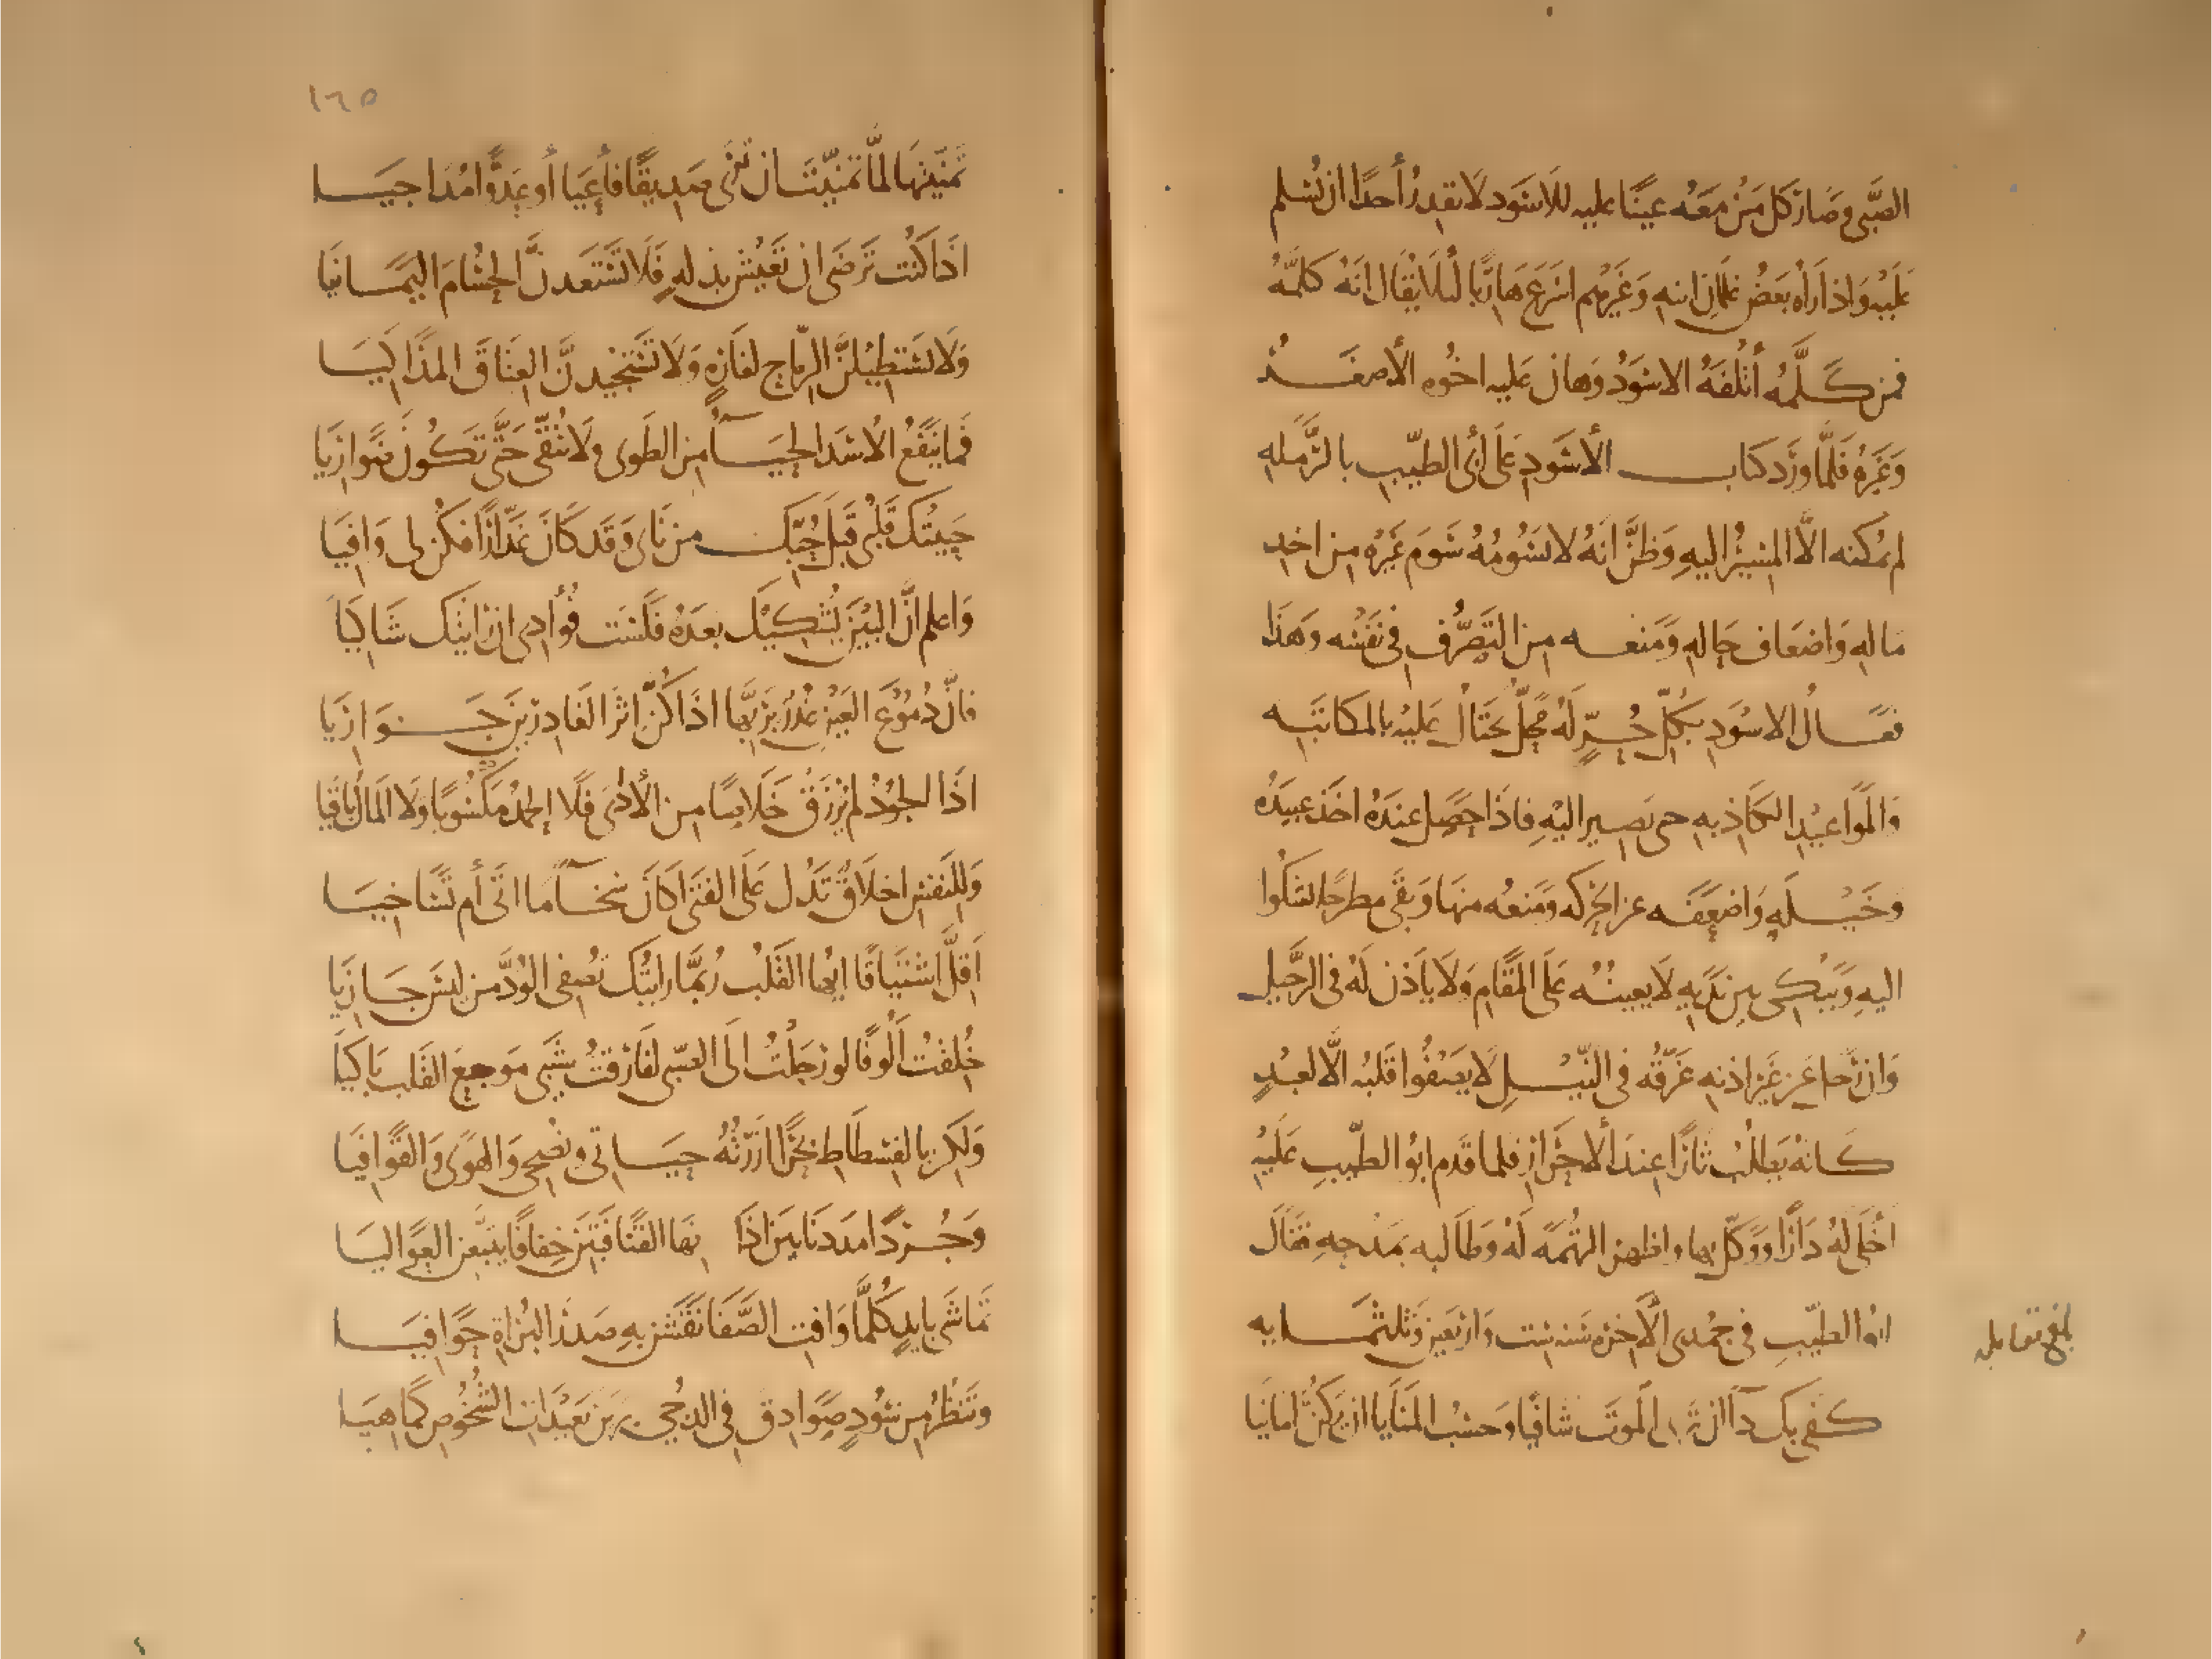 الصَّبى وصَارَ كل مَنْ مَعَهُ عَينًا عليه للاسَود لا يقدرُ أحدًا ان يُسلم
عَلَيْهِ وَاذا رَاه بَعَضُ غلمَانِ ابنهِ وَغَيرهم اسرَعَ هَارِبًا لئلا يُقال انهُ كلمَّهُ
فمن كَلَّمهُ أتلفهُ الاسوَدُ وَهان عَليه اخوُه الأصغَــرُ
وَغَيرهُ فلَمَّا ورَد كتابــــ الأسَودِ عَلَى أبى الطيّبِ بالرَّملهِ
لم يمُكنه الاَّ المسِيرُ اليهِ وَظنَّ انهُ لا يَسُومُهُ سَومَ غَيرهِ مِن اخذِ
مَا لهِ وَاضعَاف حَالهِ وَمَنعــه مِن التصَرُّف فِى نفسْه وَهَذا
فعَــالُ الاسوَدِ بكلّ حُــرٍّ لَهُ محَلٌّ يحتَالُ عَليْهِ بالمكَاتبَه
وَالمَواعيْدِ الكَاذبهِ حى يَصِير اليْهِ فاذَا حَصَل عندَهُ اخَذ عبيدَهُ
وخَيْــلَه وَاضعَفَــه عن الحركه ومَنعُه منهَا وَبقَى مطرحًا يشكوا
اليهِ وَيَبْكى بين يَدَيهِ لا يعينُــه عَلَى المقَامِ ولا يَاذن لَهُ فى الرَّحيلِ
وَان رَحل عَن غَير اذنهِ غَرّقُه فى النّيْــلِ لا يَصفُوا قلبُه الاَّ لعبْدٍ
كَــانهُ يَطالُبُ ثارًا عِندَ الأحرَارِ فلما قدم ابوُ الطّيبِ عَلَيْهِ
أخلَى لَهُ دَارًا ووَكّل بها واظهر التُهمَه لَهُ وَطَالبه بمَدحِهِ فقَالَ
ابوُا الطيّبِ فى جُمدى الآخره سَنه ستت وَاربَعين وثلثمَــايه
كفى بكَ دآً ان ترى المَوتَ شَافيًا وَحسْبُ المنَايا ان يكُنَّ امانيَا
بلغ مقابله
١٦٥
تمنَّيتَهَا لمَّا تمنيّتَــ ان تَرَى صَدِيقًا فأعيَا أو عَدوًّا مُدَاجيَــا
اذَا كُنت تَرضَى ان تَعيْشَ بذلهٍ فَلَا تَستَعدنَّ الحُسَامَ اليَمَــانيَا
وَلا تستَطِيْلنَّ الرّمَاح لغَارَهٍ وَلا تَستَجيدنَّ العِتَاقَ المذَاكيَــا
فَما يَنفَعُ الأسْدَ الحَيَــآُ من الطَوى ولا تُتّقَى حَتَّى تَكُونَ ضَوارِيَا
حَببْتُكَ قَلْبى قَبلَ حُبّكــ من نَاى وَقَد كَانَ غَدَّارًا فكُن لى وَافيَا
وَاعلم انَّ البَيْنَ يُشْكِيْكَ بعدَهُ فَلَسْتَ فُؤَادِى ان رَايتُكَ شَاكيَا
فانّ دُمُوعَ العَيْنِ غُدْرٌ برَبّها اذَا كُنّ اثرَ الغَادِرِينَ جَــوَارِيَا
اذَا الجوُدُ لم يُرْزَقْ خَلاصًا مِن الأذَى فَلا الحمْدُ مَكسُوبًا ولا المَالُ بَاقيَا
وَلِلنَفسِ اخلَاقٌ تَدُل عَلَى الفتَى اكَانَ سَخــآً مَا اتَى أم تَسَاخيَــا
اَقلَّ اشتيَاقًا ايهُا القَلْبُ رُبمَّا رَايتُكَ تصفِى الوُدَّ من ليسَ جَــازِيَا
خُلِقْتُ ألُوفًا لو رَحَلْتُ الَى الصّبى لفَارَقتُ شَيبى مَوجعَ القَلب بَاكيَا
وَلكِنّ بالفسْطَاطِ بَحْرًا ازَرْتُهُ حيَــاتى ونُصْحِى وَالهوَى وَالقَوافيَا
وَجُــرْدًا مددنَا بَين اذَانهَا القنَا فَبتنَ خِفافًا يتبَعنَ العَوالِيَــا
تمَاشَى بايدٍ كُلَّمَا وَافتِ الصَّفَا نقَشنَ بهِ صَدرَ البُزَاةِ حَوافيَــا
وتَنظُرُ مِن سُودٍ صَوادِقَ فى الدجُى يرَينَ بَعيْدَاتِ الشُّخُوصِ كمَا هيَــا